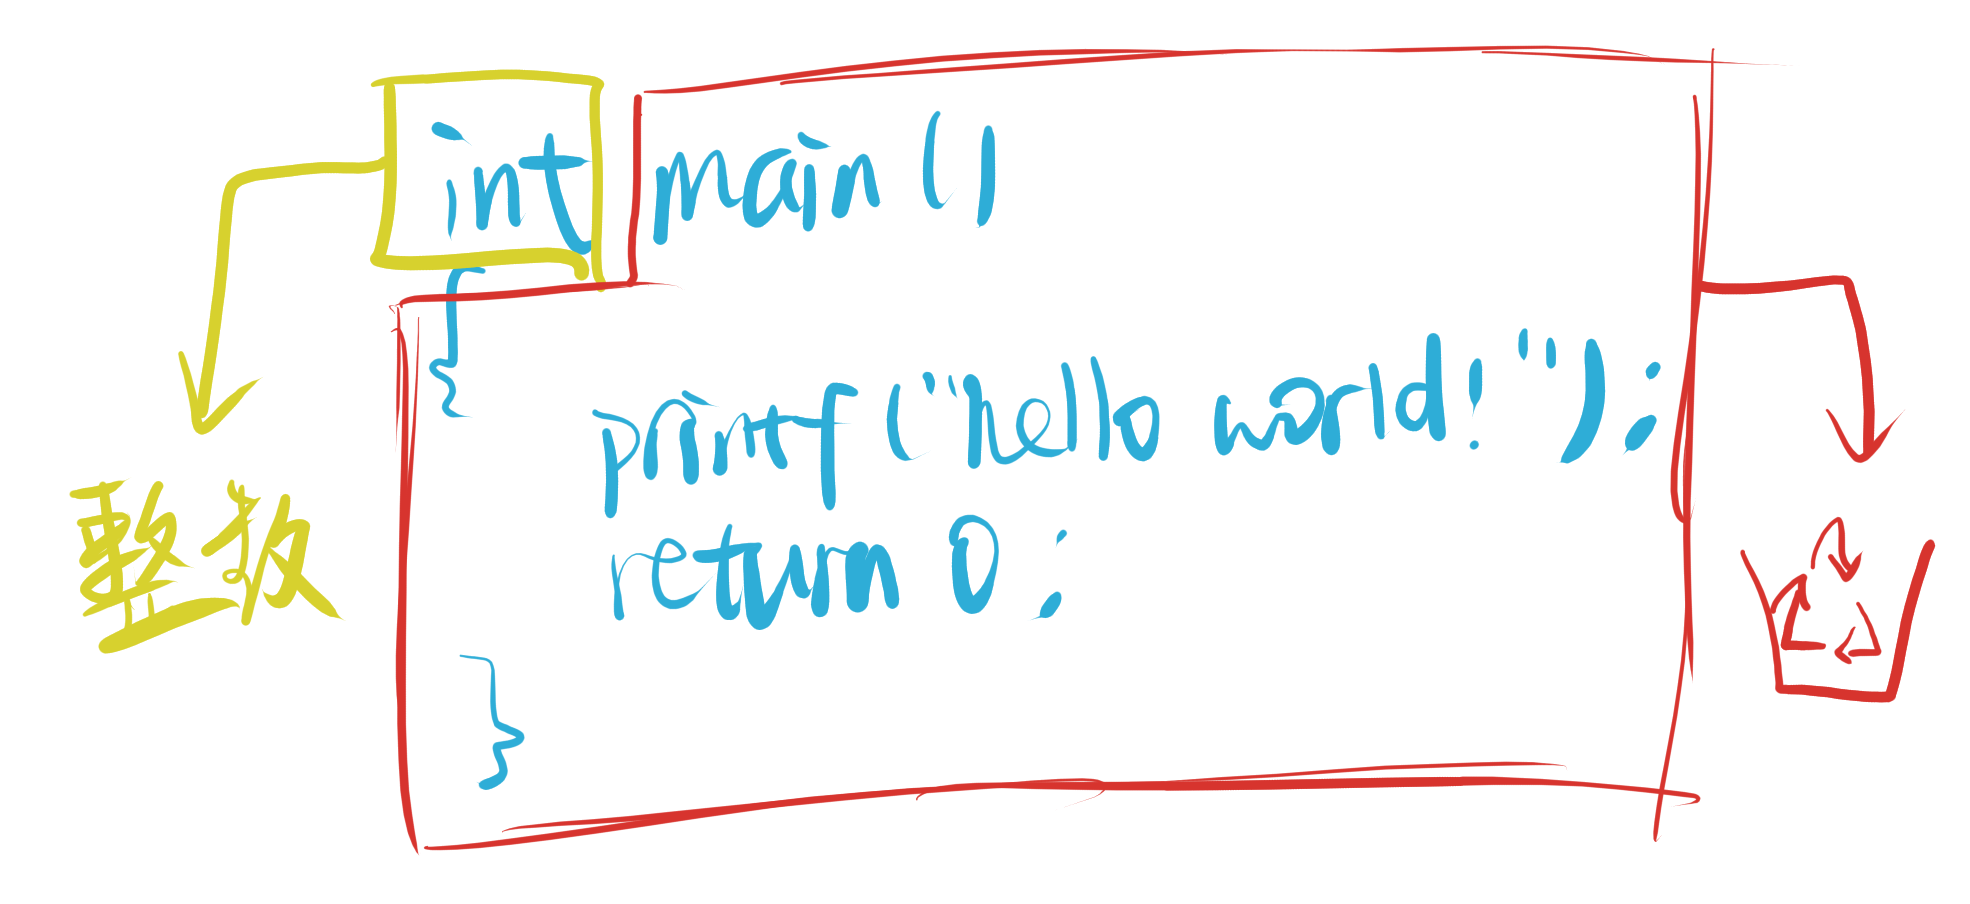 int main()
{
printf("hello world!");
return 0;
}
整数